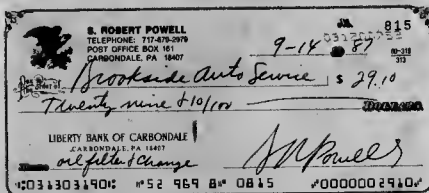 815
S. ROBERT POWELL
TELEPHONE: 717-679-2979
POST OFFICE BOX 161
CARBONDALE, PA 18407
9-14 87
60-318
313
Brookside Auto Service $ 29.10
Twenty nine & 10/100 DOLLARS
LIBERTY BANK OF CARBONDALE
CARBONDALE, PA 18407
oil filter & Change
S R Powell
⑆031303190⑆ ⑈52 969 8⑈ 0815 ⑈0000002910⑈